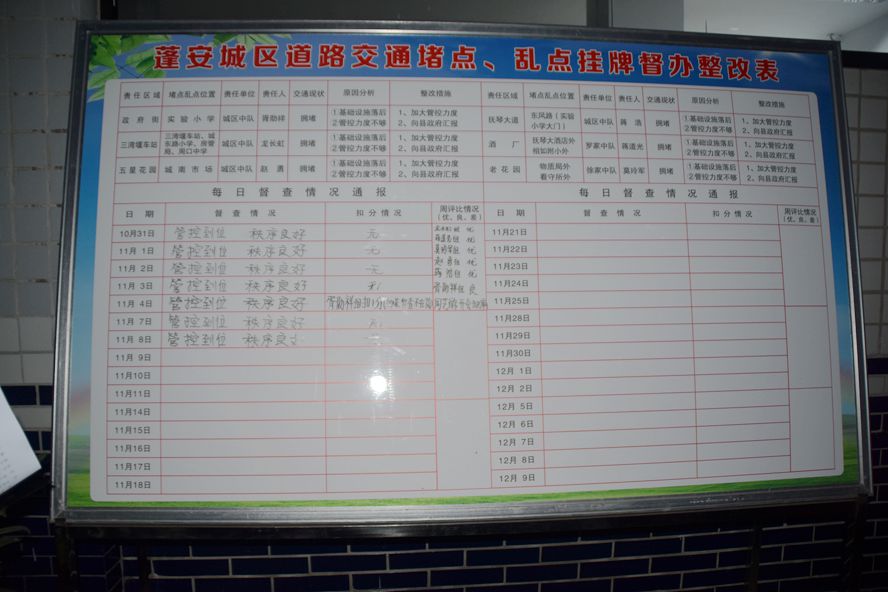 蓬安城区道路交通堵点、乱点挂牌督办整改表
责任区域 堵点乱点位置 责任单位 责任人 交通现状 原因分析 整改措施 责任区域 堵点乱点位置 责任单位 责任人 交通现状 原因分析 整改措施
政府街 实验小学 城区中队 胥勋祥 拥堵 1基础设施落后 1、加大管控力度 抚琴大道 东风路(实验 城区中队 蒋浩 拥堵 1基础设施落后 1、加大管控力度
2管控力度不够 2、向县政府汇报 小学大门) 2管控力度不够 2、向县政府汇报
三湾堰车站 三湾堰车站、城 城区中队 龙长虹 拥堵 1基础设施落后 1、加大管控力度 酒厂 抚琴大酒店外 罗家中队 蒋道光 拥堵 1基础设施落后 1、加大管控力度
东路小学、房管 2管控力度不够 2、向县政府汇报 相如附小外 2管控力度不够 2、向县政府汇报
局、周口中学
五星花园 城南市场 城区中队 赵勇 拥堵 1基础设施落后 1、加大管控力度 老花园 物质局外 徐家中队 莫玲军 拥堵 1基础设施落后 1、加大管控力度
2管控力度不够 2、向县政府汇报 看守所外 2管控力度不够 2、向县政府汇报
每日督查情况通报 每日督查情况通报
日期 督查情况 扣分情况 周评比情况 日期 督查情况 扣分情况 周评比情况
(优、良、差) (优、良、差)
10月31日 管控到位 秩序良好 无 优 11月21日
11月1日 管控到位 秩序良好 无 优 11月22日
11月2日 管控到位 秩序良好 无 优 11月23日
11月3日 管控到位 秩序良好 无 良 11月24日
11月4日 管控到位 秩序良好 胥勋祥组扣1分 11月25日
11月7日 管控到位 秩序良好 无 11月28日
11月8日 管控到位 秩序良好 无 11月29日
11月9日 11月30日
11月10日 12月1日
11月11日 12月2日
11月14日 12月5日
11月15日 12月6日
11月16日 12月7日
11月17日 12月8日
11月18日 12月9日